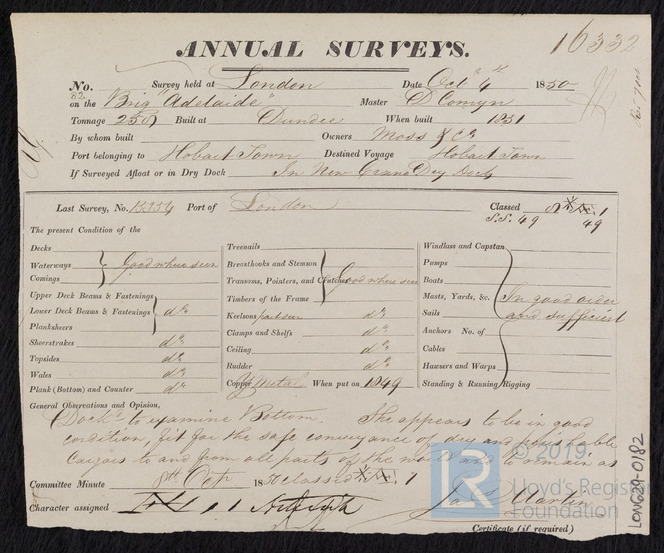 16332
ANNUAL SURVEYS.
No. 82 Survey held at London Date Octr 4th 1850
on the Brig "Adelaide" Master D Comyn
Tonnage 250 Built at Dundee When built 1831
By whom built Owners Moss & Co
Port belonging to Hobart Town Destined Voyage Hobart Town
If Surveyed Afloat or in Dry Dock In New Crane Dry Dock
Last Survey, No. 13954 Port of London Classed 1
S.S. 49 49
The present Condition of the
Decks
Waterways Good where seen
Comings
Upper Deck Beams & Fastenings
Lower Deck Beams & Fastenings do
Planksheers
Sheerstrakes do
Topsides do
Wales do
Plank (Bottom) and Counter do
Treenails
Breasthooks and Stemson
Transoms, Pointers, and Crutches Good where seen
Timbers of the Frame
Keelsons part seen do
Clamps and Shelfs do
Ceiling do
Rudder do
Copper Y Metal When put on 1849
Windlass and Capstan
Pumps
Boats
Masts, Yards, &c. In good order
Sails and sufficient
Anchors No. of
Cables
Hawsers and Warps
Standing & Running Rigging
General Observations and Opinion,
Dockd to examine Bottom. She appears to be in good
condition, fit for the safe conveyance of dry and perishable
Cargoes to and from all parts of the world and to remain as
Committee Minute 1850 classed 1
Character assigned Jas Martin
Certificate (if required)
© 2019
LR
Lloyd's Register
Foundation
LON629-0182